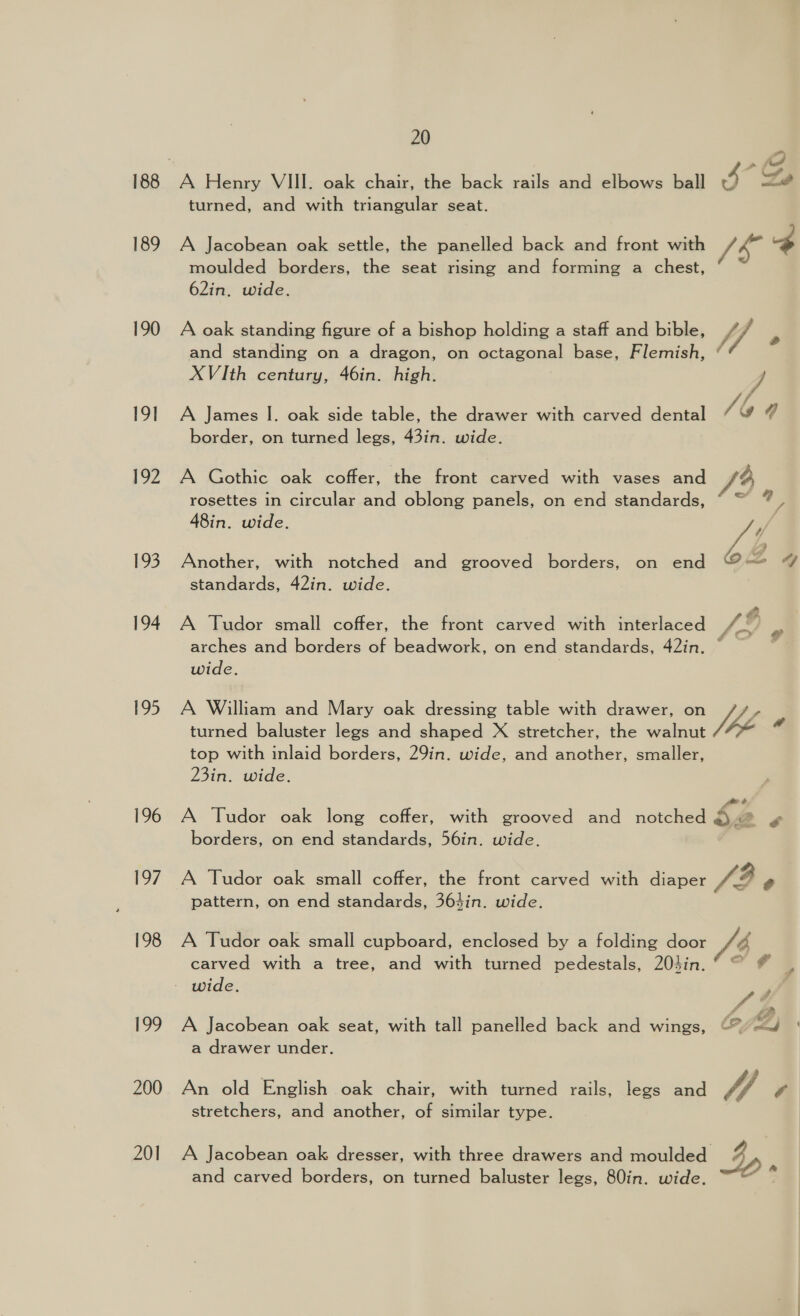 20
188 A Henry VIII. oak chair, the back rails and elbows ball
turned, and with triangular seat.
189 A Jacobean oak settle, the panelled back and front with
moulded borders, the seat rising and forming a chest,
62in. wide.
190 A oak standing figure of a bishop holding a staff and bible,
and standing on a dragon, on octagonal base, Flemish,
XVIth century, 46in. high.
191 A James I. oak side table, the drawer with carved dental
border, on turned legs, 43in. wide.
192 A Gothic oak coffer, the front carved with vases and
rosettes in circular and oblong panels, on end standards,
48in. wide.
193 Another, with notched and grooved borders, on end
standards, 42in. wide.
194 A Tudor small coffer, the front carved with interlaced
arches and borders of beadwork, on end standards, 42in.
wide.
195 A William and Mary oak dressing table with drawer, on
turned baluster legs and shaped X stretcher, the walnut
top with inlaid borders, 29in. wide, and another, smaller,
23in. wide.
196 A Tudor oak long coffer, with grooved and notched
borders, on end standards, 56in. wide.
197 A Tudor oak small coffer, the front carved with diaper
pattern, on end standards, 36½in. wide.
198 A Tudor oak small cupboard, enclosed by a folding door
carved with a tree, and with turned pedestals, 20½in.
wide.
199 A Jacobean oak seat, with tall panelled back and wings,
a drawer under.
200 An old English oak chair, with turned rails, legs and
stretchers, and another, of similar type.
201 A Jacobean oak dresser, with three drawers and moulded
and carved borders, on turned baluster legs, 80in. wide.